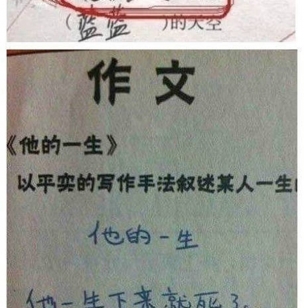 （蓝蓝）的天空
作文
《他的一生》
以平实的写作手法叙述某人一生
他的一生
他一生下来就死了。